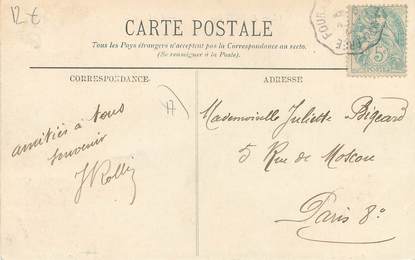 12 €
CARTE POSTALE
Tous les Pays étrangers n'acceptent pas la Correspondance au recto.
(Se renseigner à la Poste).
CORRESPONDANCE
ADRESSE
17
amitiés à tous
souvenir
Mademoiselle Juliette Bigeard
5 Rue de Moscou
Paris 8e
5c